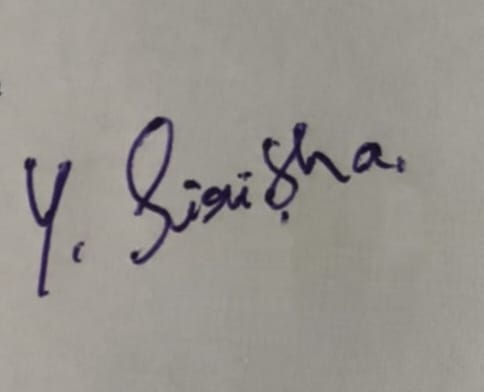 Y. Sirisha.